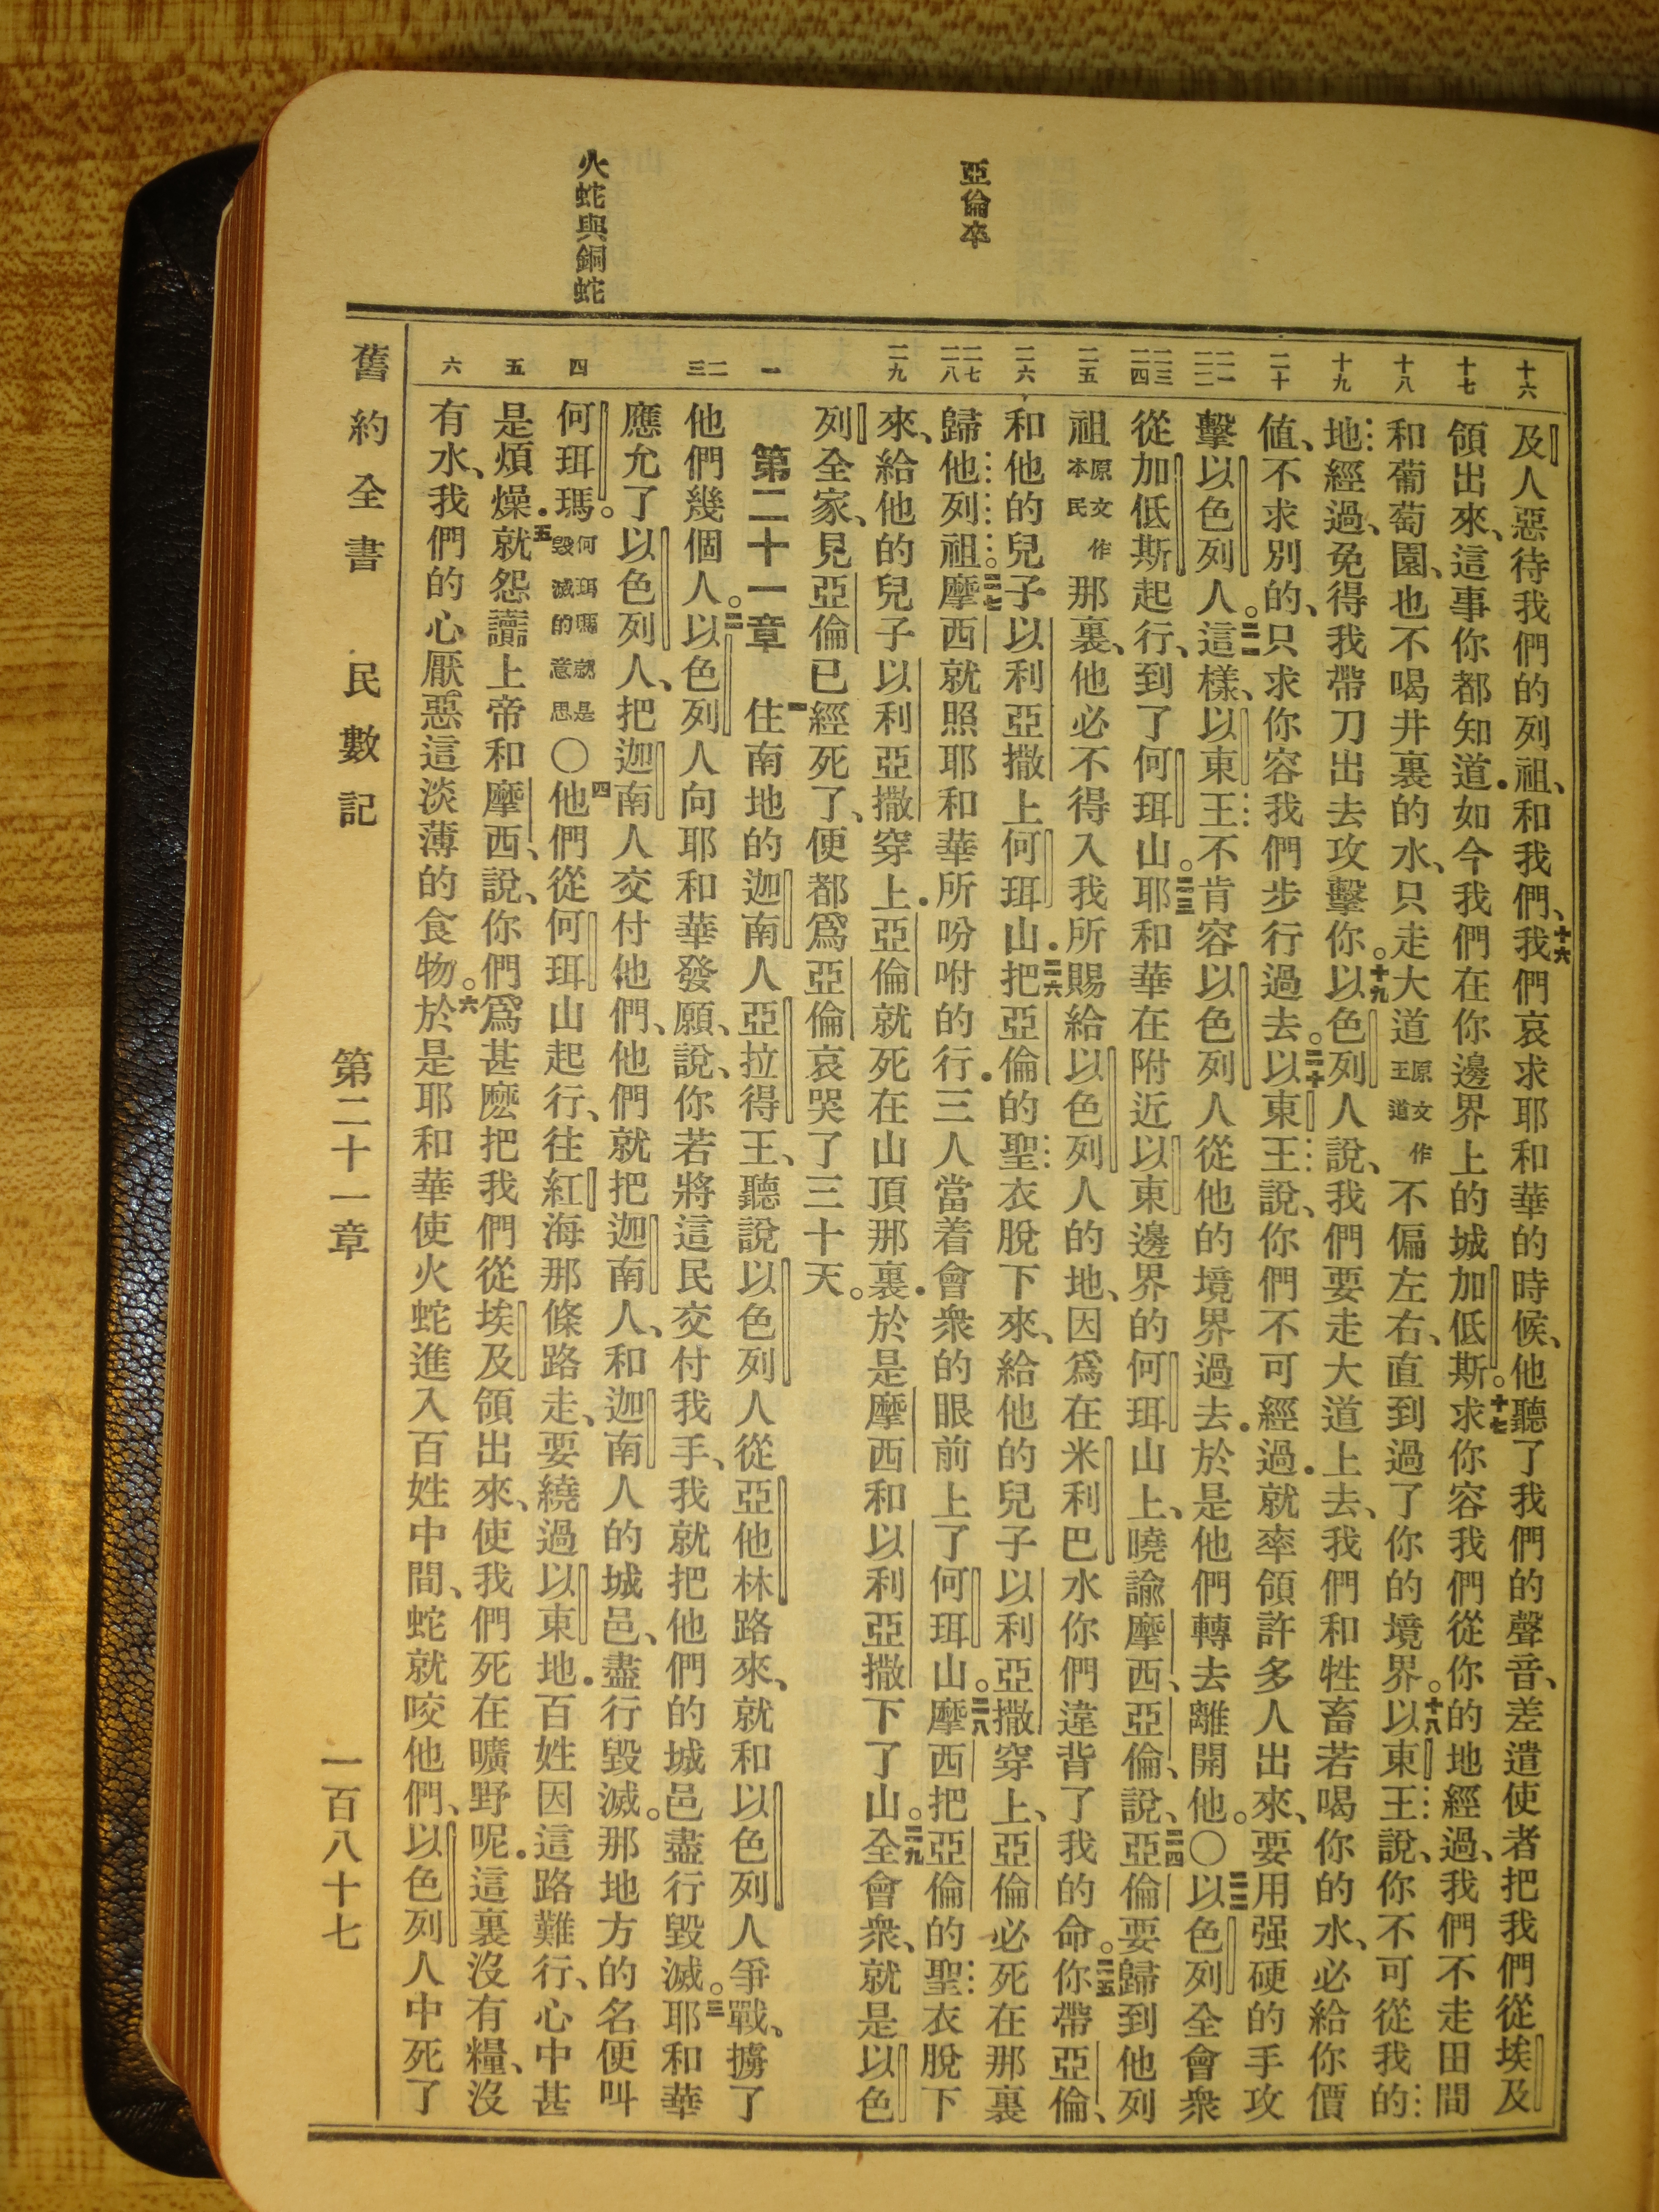 亞倫卒
火蛇與銅蛇
十六 十七 十八 十九 二十 二一 二二 二三 二四 二五 二六 二七 二八 二九 一 二 三 四 五 六
及人惡待我們的列祖、和我們、十六我們哀求耶和華的時候、他聽了我們的聲音、差遣使者把我們從埃及
領出來、這事你都知道．如今我們在你邊界上的城加低斯。十七求你容我們從你的地經過、我們不走田間
和葡萄園、也不喝井裏的水、只走大道原文作王道不偏左右、直到過了你的境界。十八以東王說、你不可從我的
地經過、免得我帶刀出去攻擊你。十九以色列人說、我們要走大道上去、我們和牲畜若喝你的水、必給你價
值、不求別的、只求你容我們步行過去。二十以東王說、你們不可經過．就率領許多人出來、要用强硬的手攻
擊以色列人。二一這樣、以東王不肯容以色列人從他的境界過去．於是他們轉去離開他。〇二二以色列全會衆
從加低斯起行、到了何珥山。二三耶和華在附近以東邊界的何珥山上、曉諭摩西、亞倫、說、二四亞倫要歸到他列
祖原文作本民那裏、他必不得入我所賜給以色列人的地、因爲在米利巴水你們違背了我的命。二五你帶亞倫、
和他的兒子以利亞撒上何珥山．二六把亞倫的聖衣脫下來、給他的兒子以利亞撒穿上、亞倫必死在那裏
歸他列祖。二七摩西就照耶和華所吩咐的行．三人當着會衆的眼前上了何珥山。二八摩西把亞倫的聖衣脫下
來、給他的兒子以利亞撒穿上．亞倫就死在山頂那裏．於是摩西和以利亞撒下了山。二九全會衆、就是以色
列全家、見亞倫已經死了、便都爲亞倫哀哭了三十天。
第二十一章　一住南地的迦南人亞拉得王、聽說以色列人從亞他林路來、就和以色列人爭戰、擄了
他們幾個人。二以色列人向耶和華發願、說、你若將這民交付我手、我就把他們的城邑盡行毀滅。三耶和華
應允了以色列人、把迦南人交付他們、他們就把迦南人、和迦南人的城邑、盡行毀滅。那地方的名便叫
何珥瑪。何珥瑪就是毀滅的意思〇四他們從何珥山起行、往紅海那條路走、要繞過以東地．百姓因這路難行、心中甚
是煩燥．五就怨讟上帝和摩西、說、你們爲甚麽把我們從埃及領出來、使我們死在曠野呢．這裏沒有糧、沒
有水、我們的心厭惡這淡薄的食物。六於是耶和華使火蛇進入百姓中間、蛇就咬他們、以色列人中死了
舊約全書　民數記　第二十一章　一百八十七